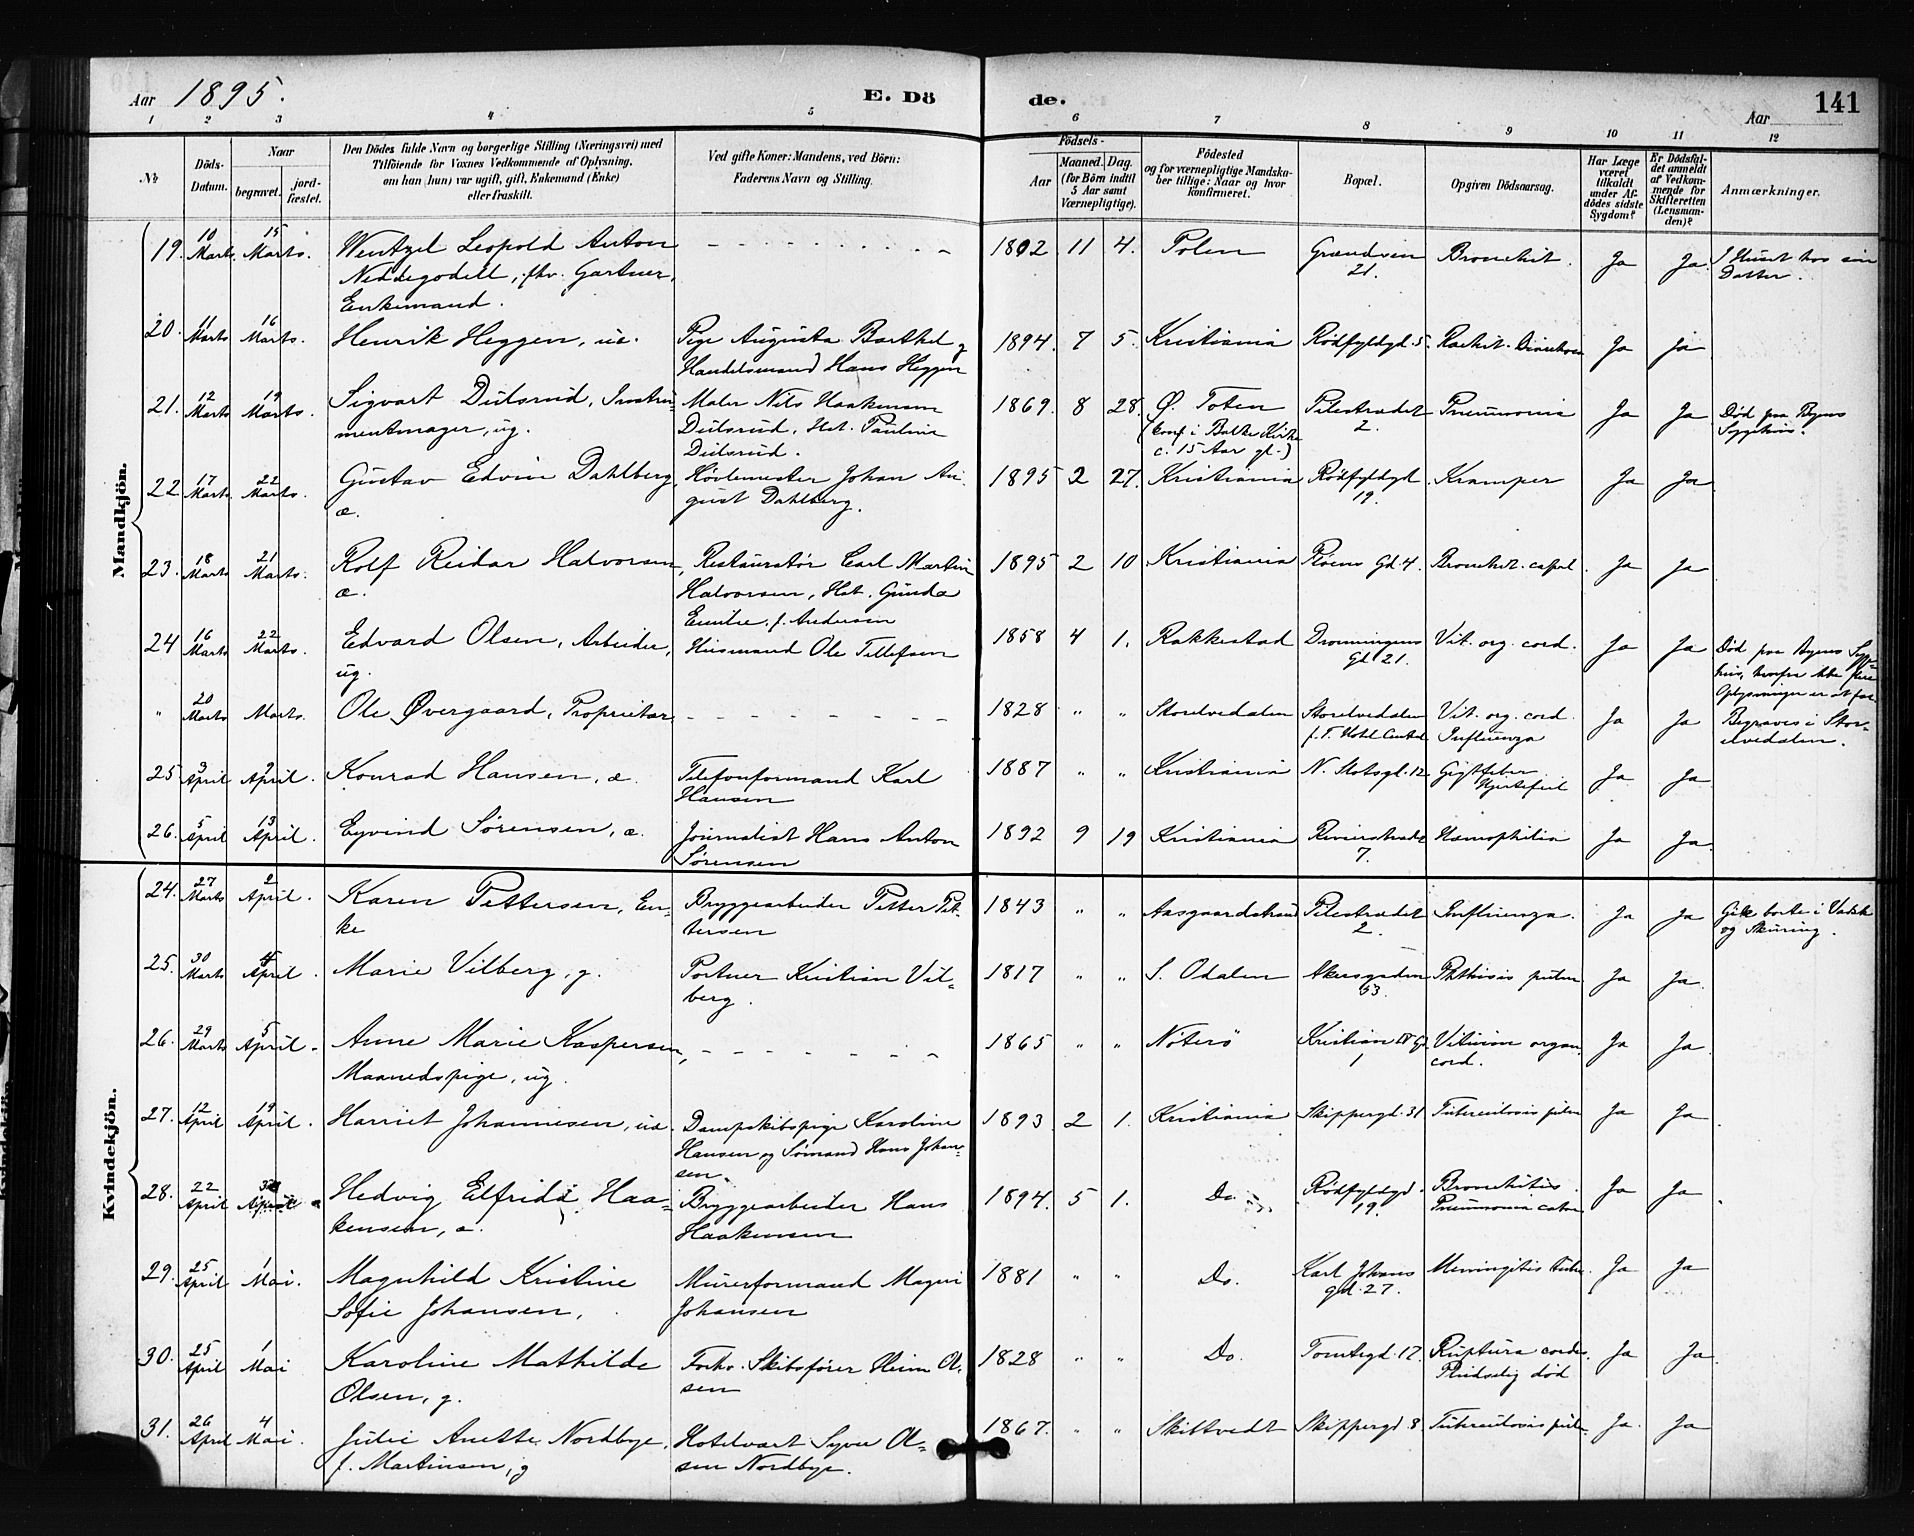 Aar 1895.
E. Döde.
Aar
141
1 2 3 4 5 6 7 8 9 10 11 12
№
Döds-Datum.
Naar
begravet.
jordfæstet.
Den Dödes fulde Navn og borgerlige Stilling (Næringsvei) med
Tilföiende for Voxnes Vedkommende af Oplysning,
om han (hun) var ugift, gift, Enkemand (Enke)
eller fraskilt.
Ved gifte Koner: Mandens, ved Börn:
Faderens Navn og Stilling.
Födsels-
Aar
Maaned. Dag.
(for Börn indtil
5 Aar samt
Værnepligtige).
Födested
og for værnepligtige Mandskaber tillige: Naar og hvor
konfirmeret.
Bopæl.
Opgiven Dödsaarsag.
Har Læge
været
tilkaldt
under Afdödes sidste
Sygdom?
Er Dödsfaldet anmeldt
af Vedkommende for
Skifteretten
(Lensmanden)?
Anmærkninger.
Mandkjön.
19. 10 Marts. 15 Marts. Wentzel Leopold Anton Neddegodell, fhv. Gartner, Enkemand. 1802 11 4. Polen Grændsen 21. Bronchit. Ja Ja I Huset hos sin Datter.
20. 11 Marts 16 Marts. Henrik Heggen, ue. Pige Augusta Barthel og Handelsmand Hans Heggen 1894. 7 5. Kristiania Rødfyldgd. 5. Rachit. Ja Ja
21. 12 Marts 19 Marts. Sigvart Dulsrud, Instrumentmager, ug. Maler Nils Haakensen Dulsrud, Hst. Pauline Dulsrud. 1869. 8 28. Ø. Toten (konf. i Balke Kirke c. 15 Aar gl.) Pilestrædet 2. Pneumonia Ja Ja Død paa Byens Sygehus.
22 17 Marts. 22 Marts. Gustav Edvin Dahlberg æ. Høvlemester Johan August Dahlberg. 1895 2 27. Kristiania Rødfyldgd 19. Kramper Ja Ja
23. 18 Marts 21 Marts. Rolf Reidar Halvorsen, æ. Restauratør Carl Martin Halvorsen, Hst. Gunda Emilie f. Andersen 1895 2 10 Kristiania Gd. 4. Bronchit. capil. Ja Ja
24 16 Marts 22 Marts. Edvard Olsen, Arbeider, ug. Husmand Ole Tellefsen 1858 4 1. Rakkestad Dronningens Gd 21. Vit. org. cord. Ja Ja Død paa Byens Sygehus, hvorfra ikke flere Oplysninger er at faa
" 20 Marts Marts. Ole Øvergaard, Proprietær 1828 " " Storelvedalen Storelvedalen f. T. Hotel Central Vit. org. cord. Influenza Ja Ja Begraves i Storelvedalen.
25 3 April 9 April. Konrad Hansen, æ. Telefonformand Karl Hansen 1887 " " Kristiania N. Slotsgd. 12 Gigtfeber Hjertefeil Ja Ja
26. 5 April 13 April. Eyvind Sørensen, æ. Journalist Hans Anton Sørensen 1892 9 19 Kristiania Revierstrædet 7. Hæmophilia Ja Ja
Kvindekjön.
24. 27 Marts 2 April. Karen Pettersen, Enke Bryggearbeider Petter Pettersen 1843 " " Aasgaardstrand Pilestrædet 2. Influenza. Ja Ja Gik borte i Vadsk og Skuring.
25. 30 Marts 4 April. Marie Vilberg, g. Portner Kristian Vilberg. 1817 " " S. Odalen Akersgaden 53. Phthisis pulm Ja Ja
26. 29 Marts 5 April. Anne Marie Kaspersen, Maanedspige, ug. 1865 " " Nøterø Kristian IV Gd 1 Vitium organ. cord. Ja Ja
27. 12 April 19 April. Harriet Johannesen, ue. Dampskibspige Karoline Hansen og Sømand Hans Johansen. 1893 2 1. Kristiania Skippergd. 31 Tuberculosis pulm Ja Ja
28. 22 April 30 April Hedvig Elfrida Haakensen, æ. Bryggearbeider Hans Haakensen 1894. 5 1. Do. Rødfyldgd. 19. Bronchitis. Pneumonia catar. Ja Ja
29. 25 April 1 Mai. Magnhild Kristine Sofie Johansen, Murerformand Magni Johansen 1881 " " Do. Karl Johans gd. 27. Meningitis tuber. Ja Ja
30. 25 April 1 Mai Karoline Mathilde Olsen, g. Forhv. Skibsfører Olsen 1828 " " Do. Tomtegd. 17. Ruptura cordis. Pludselig død Ja Ja
31. 26 April 4 Mai. Julie Anette Nordbye, f. Martinsen, g Hotelvært Syver Olsen Nordbye. 1867. " " Skiftvedt Skippergd 8. Tuberculosis pulm. Ja. Ja